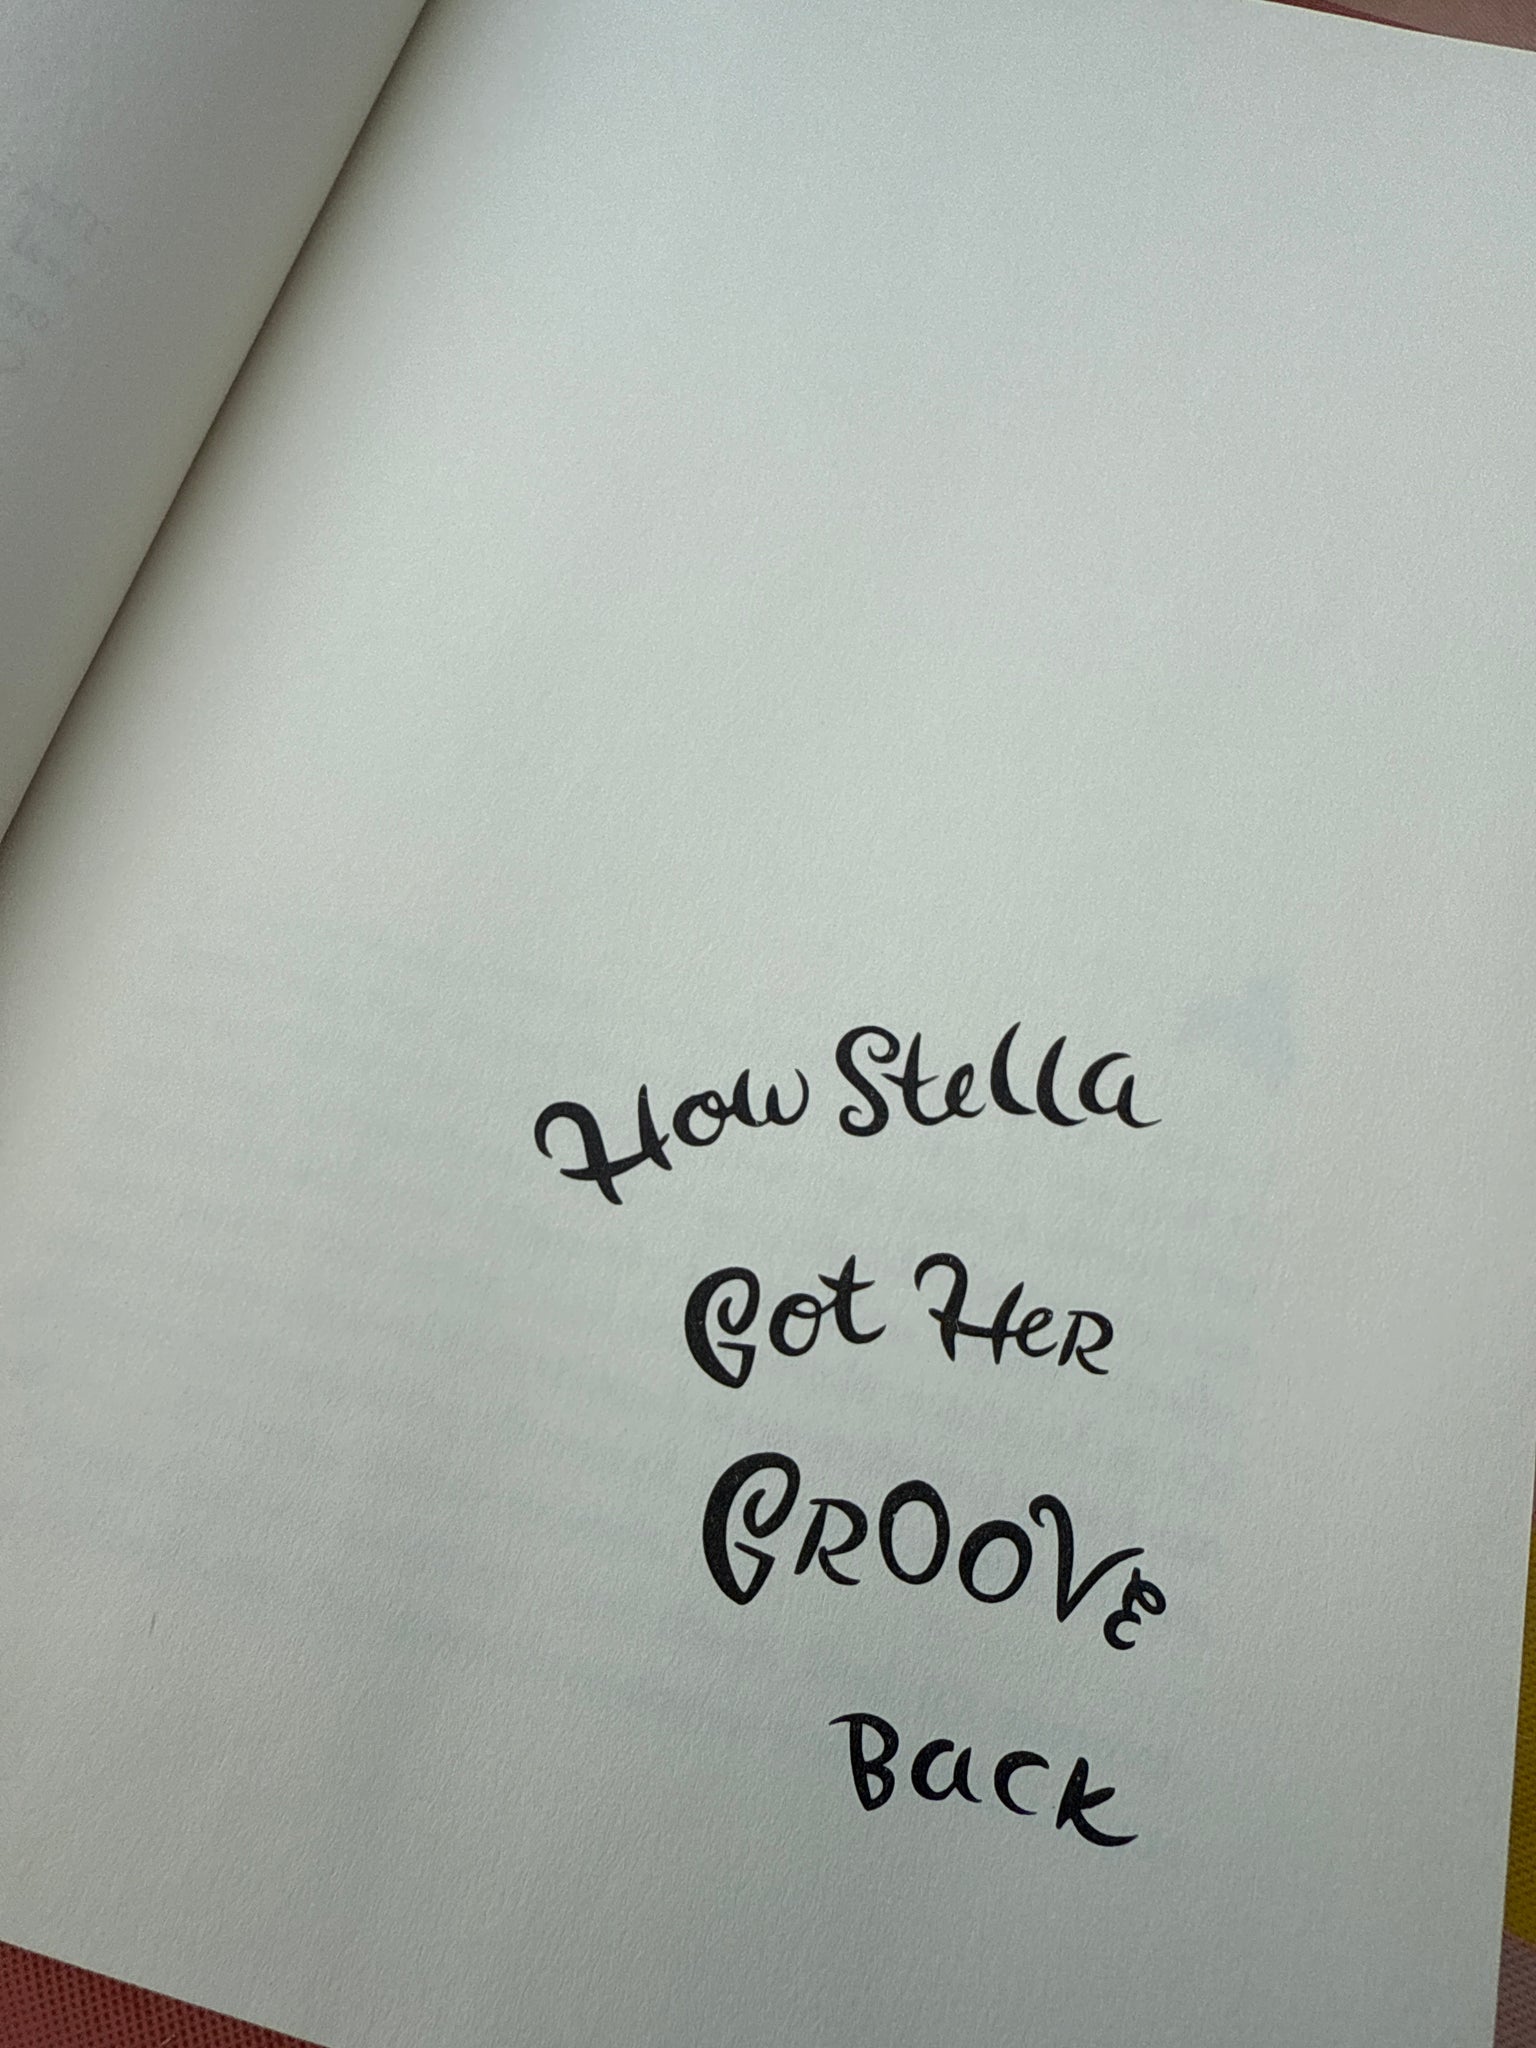 How Stella
Got Her
GROOVE
Back